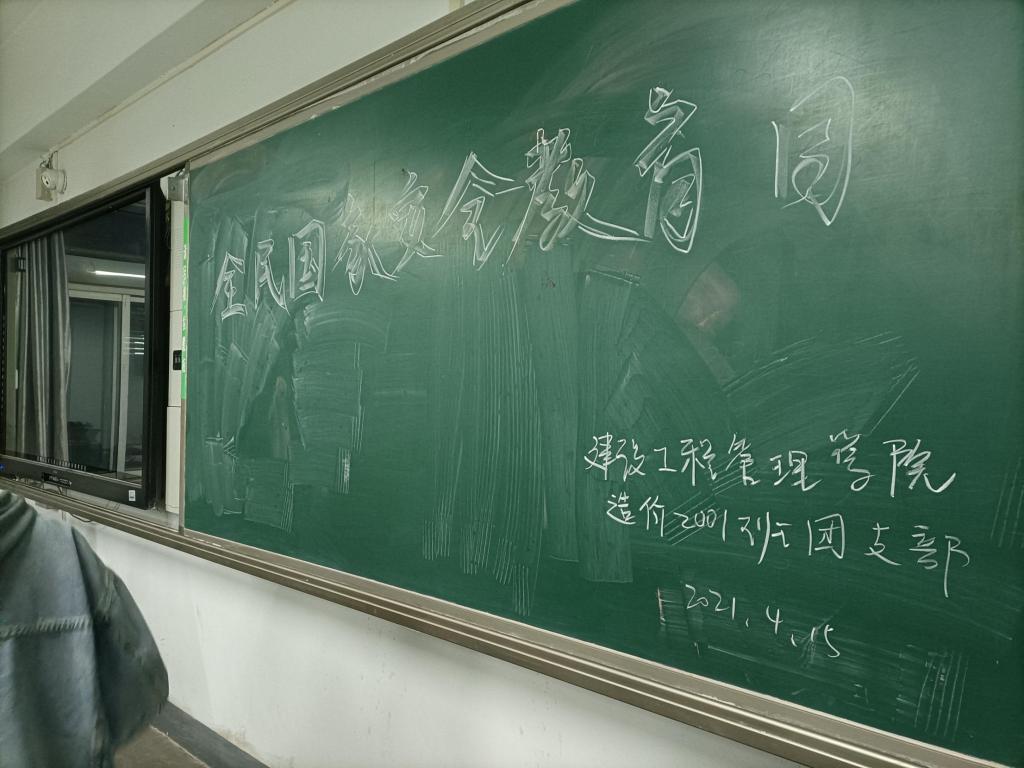 全民国家安全教育日
建设工程管理学院
造价2001班团支部
2021.4.15